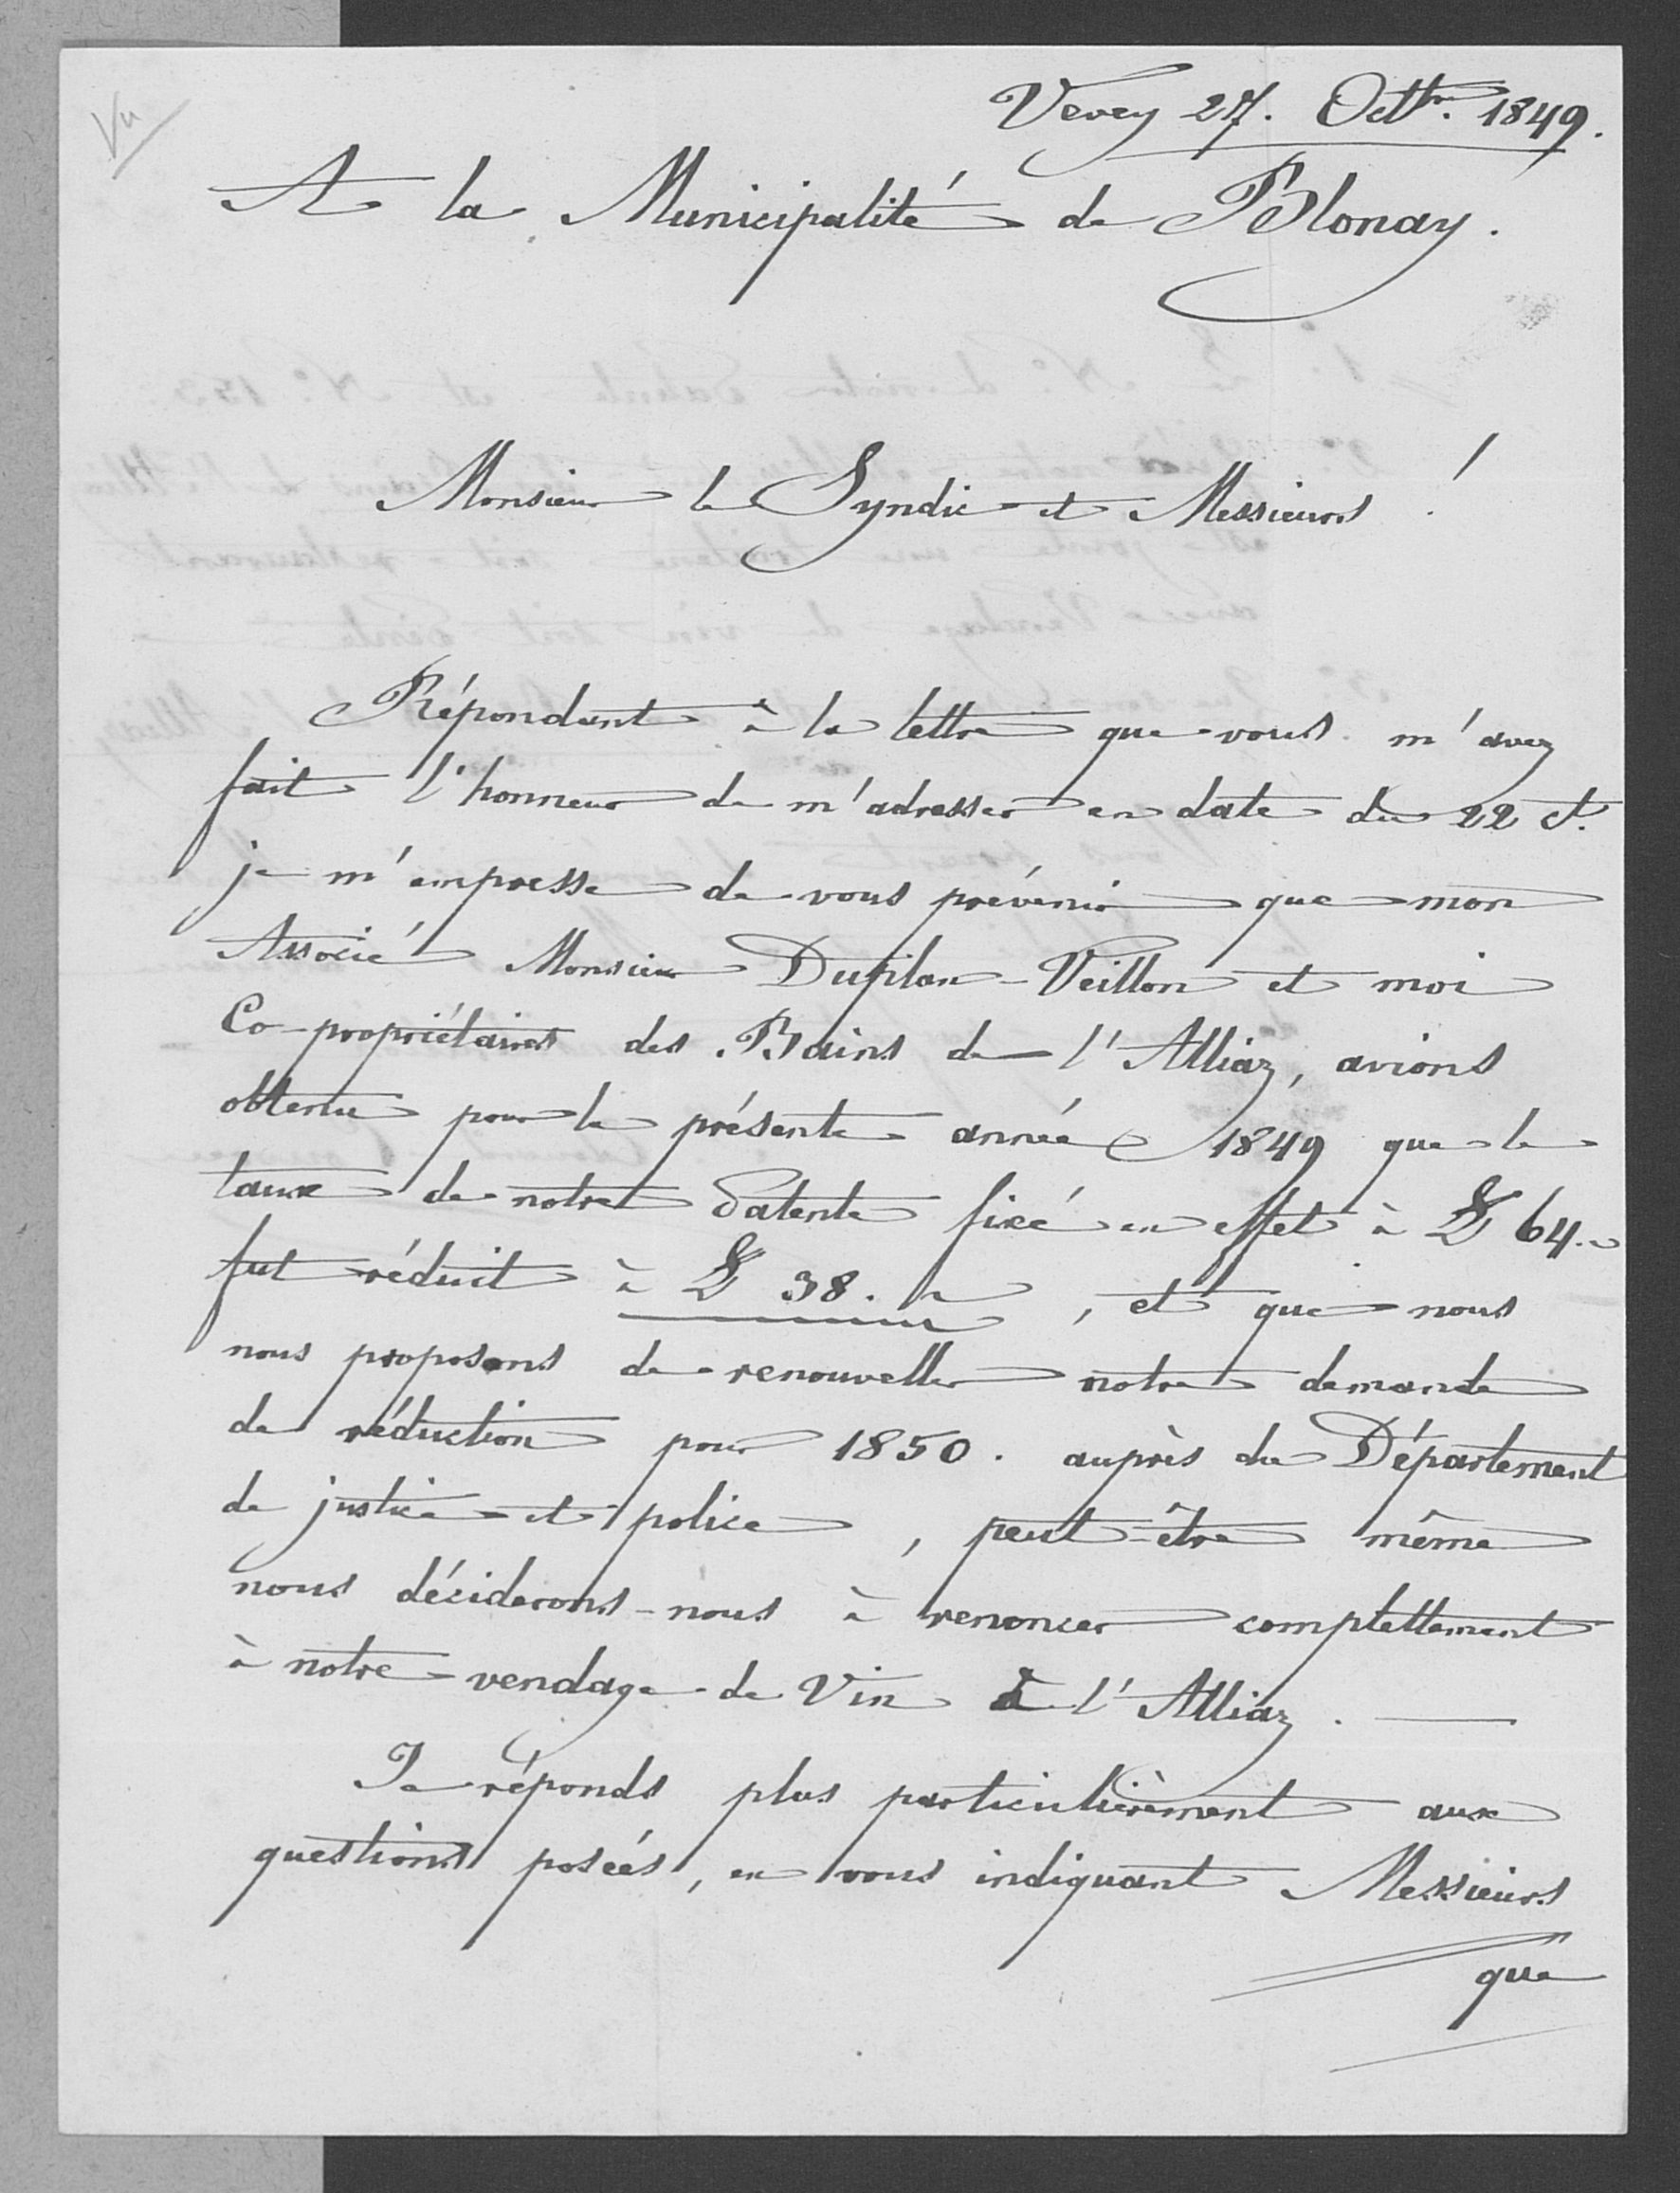 Vu
Vevey 27. Octbre. 1849.
A la Municipalité de Blonay.
Monsieur le Syndic et Messieurs !
Répondant à la lettre que vous m'avez
fait l'honneur de m'adresser en date du 22 ct.
je m'empresse de vous prévenir que mon
Associé Monsieur Duplan-Veillon et moi
Co-propriétaires des Bains de l'Alliaz, avions
obtenu pour la présente année 1849 que le
taux de notre Patente fixé en effet à 64.
fut réduit à 38. , et que nous
nous proposons de renouveller notre demande
de réduction pour 1850. auprès du Département
de justice et police , peut-être même
nous déciderons-nous à renoncer complettement
à notre vendage de Vin à l'Alliaz. —
Je réponds plus particulièrement aux
questions posées, en vous indiquant Messieurs
que